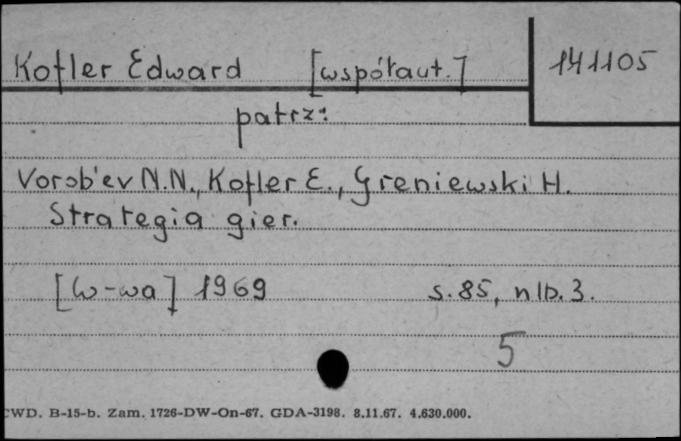 Kofler Edward [współaut.] 141105
patrz:
Vorob'ev N.N., Kofler E., Greniewski H.
Strategia gier.
[W-wa] 1969 s. 85, nlb. 3.
5
CWD. B-15-b. Zam. 1726-DW-On-67. GDA-3198. 8.11.67. 4.630.000.